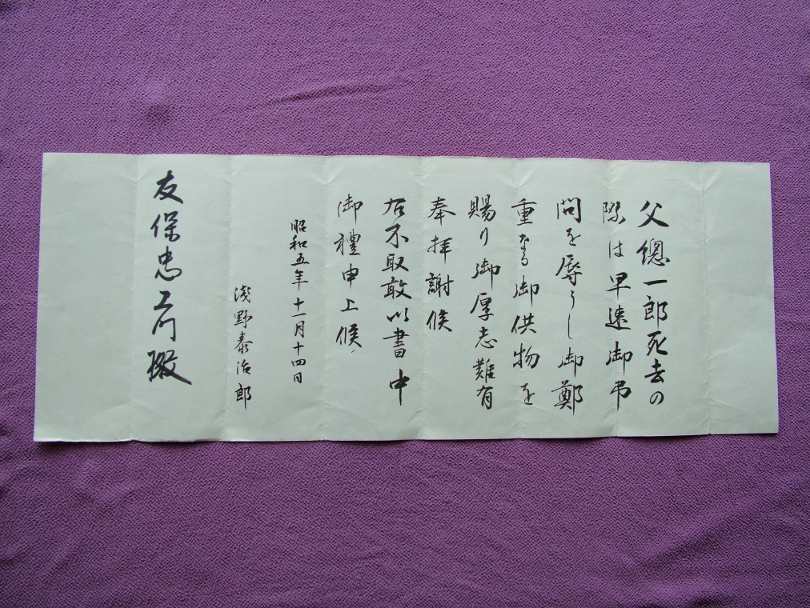 父總一郎死去の
際は早速御弔
問を辱うし御鄭
重なる御供物を
賜り御厚志難有
奉拝謝候
右不取敢以書中
御禮申上候
昭和五年十一月十四日
淺野泰治郎
友保忠 殿